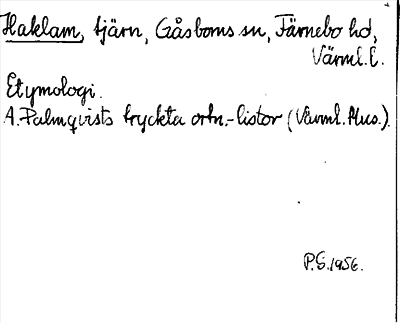 Haklam, tjärn, Gåsborns sn, Färnebo hd,
Värml. l.
Etymologi.
A. Palmqvists tryckta ortn.-listor (Värml. Mus.).
P.G. 1956.